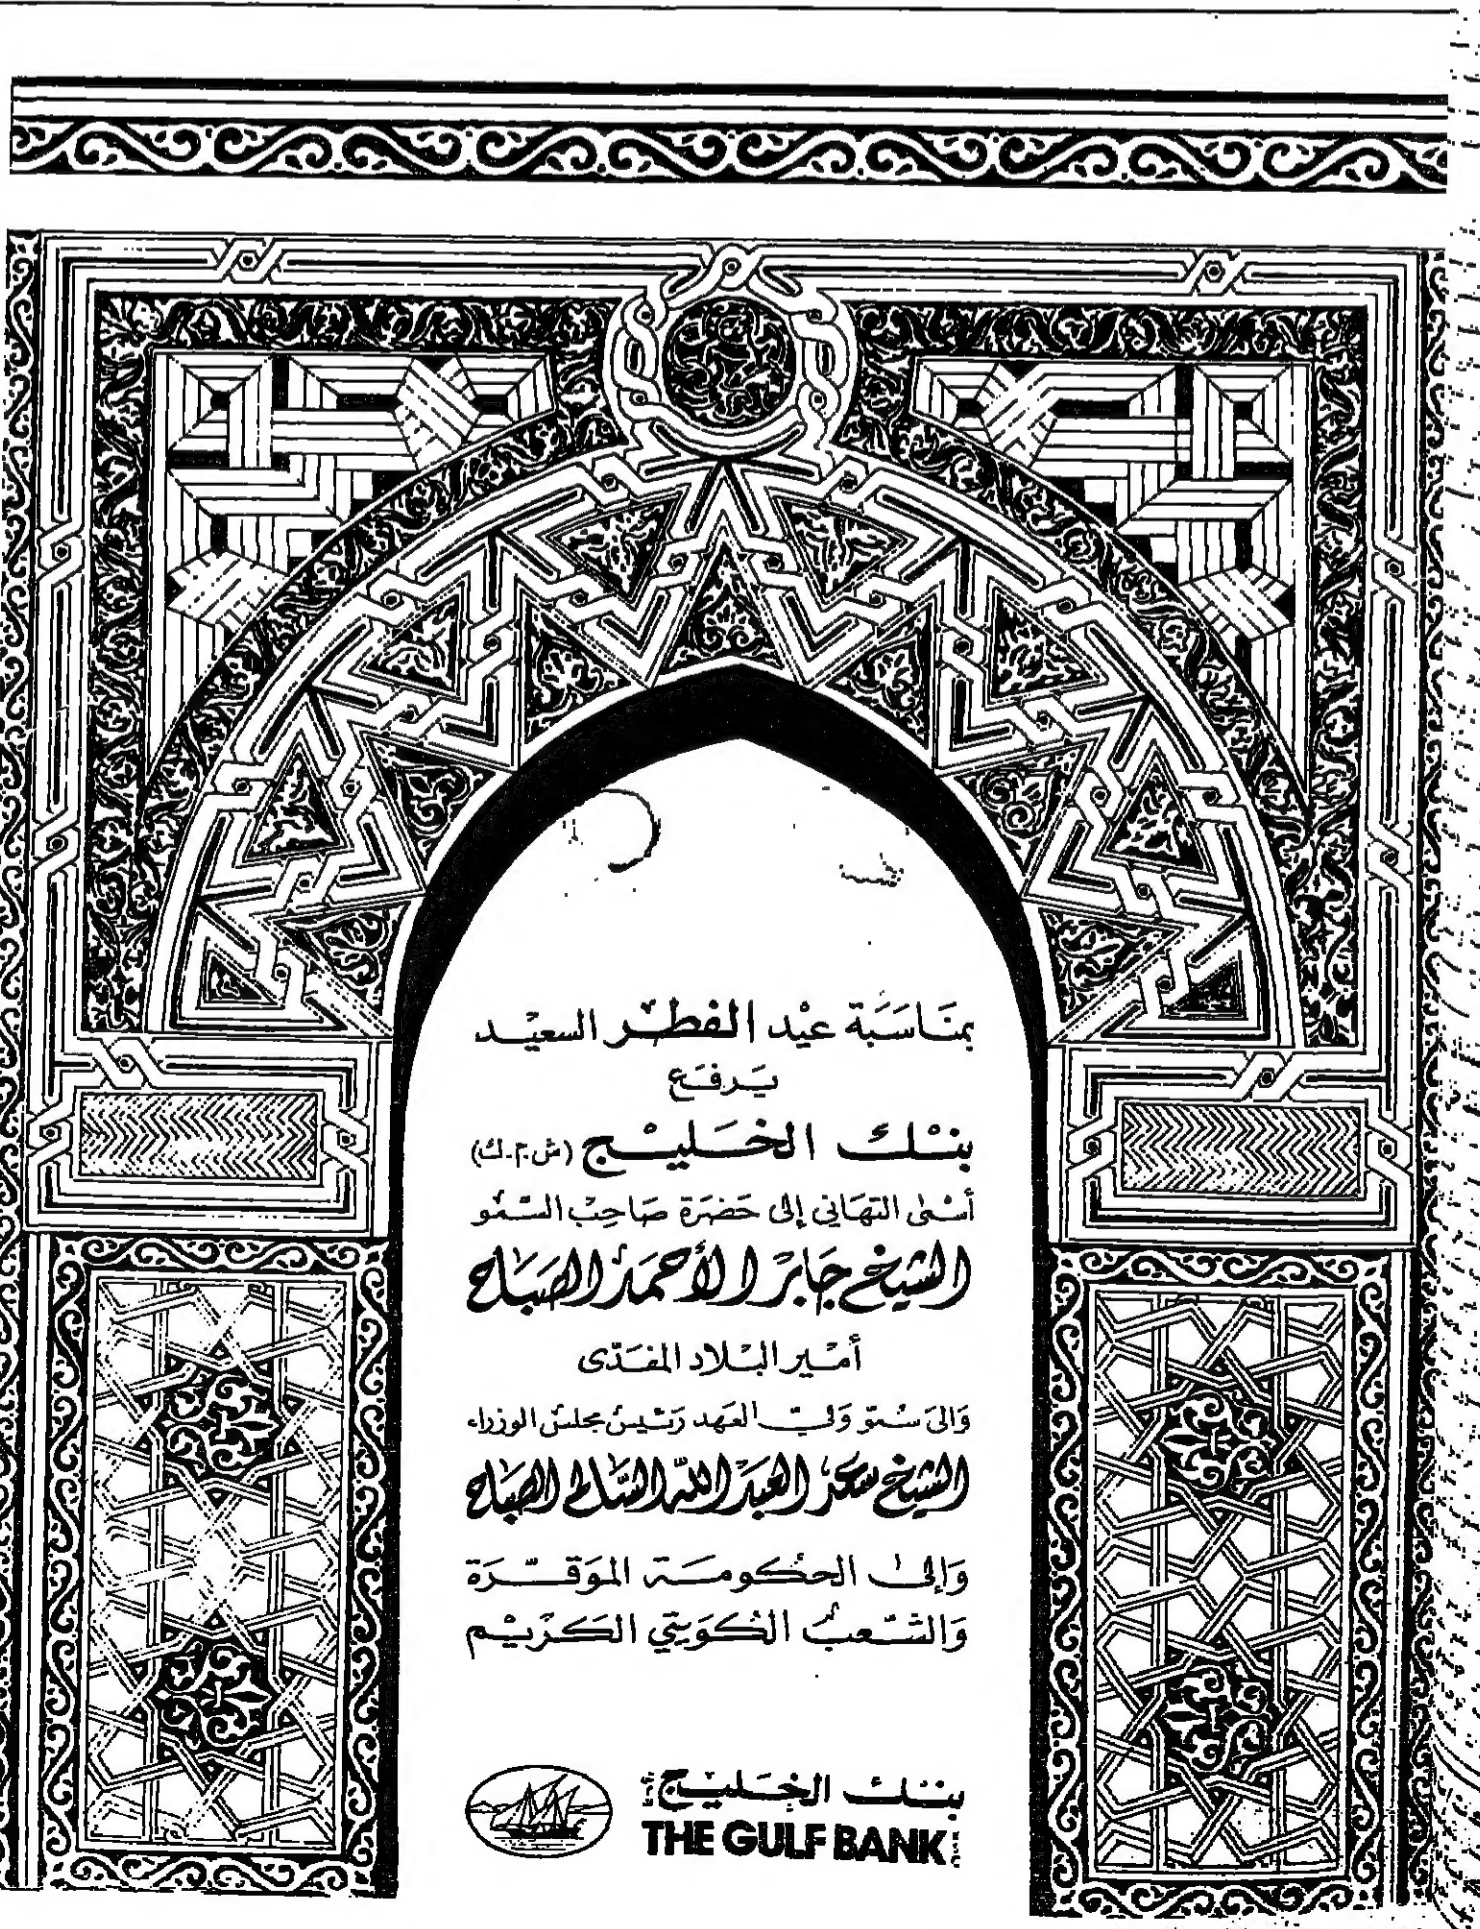 بمناسبة عيد الفطر السعيد
يرفع
بنك الخليج (ش.م.ك)
أسمى التهاني إلى حضرة صاحب السمو
الشيخ جابر الأحمد الصباح
أمير البلاد المفدى
وإلى سمو ولي العهد رئيس مجلس الوزراء
الشيخ سعد العبد الله السالم الصباح
وإلى الحكومة الموقرة
والشعب الكويتي الكريم
بنك الخليج
THE GULF BANK